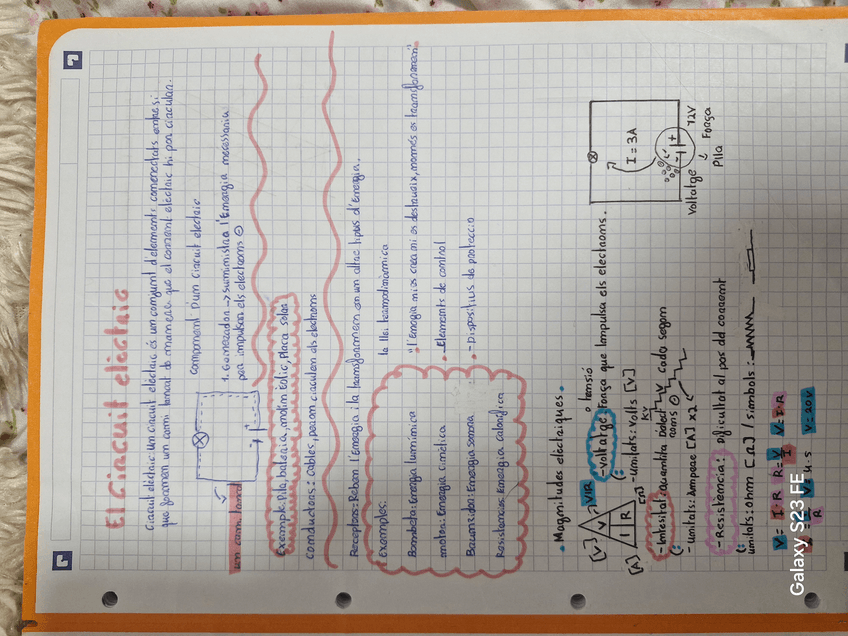 El circuit elèctric
Circuit elèctric: Un circuit elèctric és un conjunt d'elements connectats entre si
que formen un camí tancat de manera que el corrent elèctric hi pot circular.
component D'un circuit elèctric
1. Generador → Suministra l'Energia necessaria
per impulsar els electrons ⊖
un cam tancat
Exemple: Pila, bateria, molin Eòlic, placa solar
conductors: cables, per on circulen els electrons
Receptors: Reben l'Energia i la transformen en un altre tipus d'Energia.
Exemples:
Bombeta: Energia lumínica
motor: Energia cinètica
Energia sonora
Resistencia: Energia calorífica
1a llei termodinàmica
"l'Energia ni es crea ni es destrueix, només es transforma"
- Elements de control
- Dispositius de protecció
• Magnituds elèctriques.
o tensió
- Voltatge: Força que impulsa els electrons.
- unitats: Volts [V]
[V] V I R
[A] I R [Ω]
- Intesitat: quantitat D'elect
rons ⊖ cada segon
- unitats: Ampere [A] x2
- Resistència: Dificultat al pas del corrent
unitats: ohm [Ω] / simbols:
V = I · R R = V/I V = I · R
V = 4 · 5 V = 20 V
I = 3A
12V
Voltatge → Força
Pila
Galaxy S23 FE